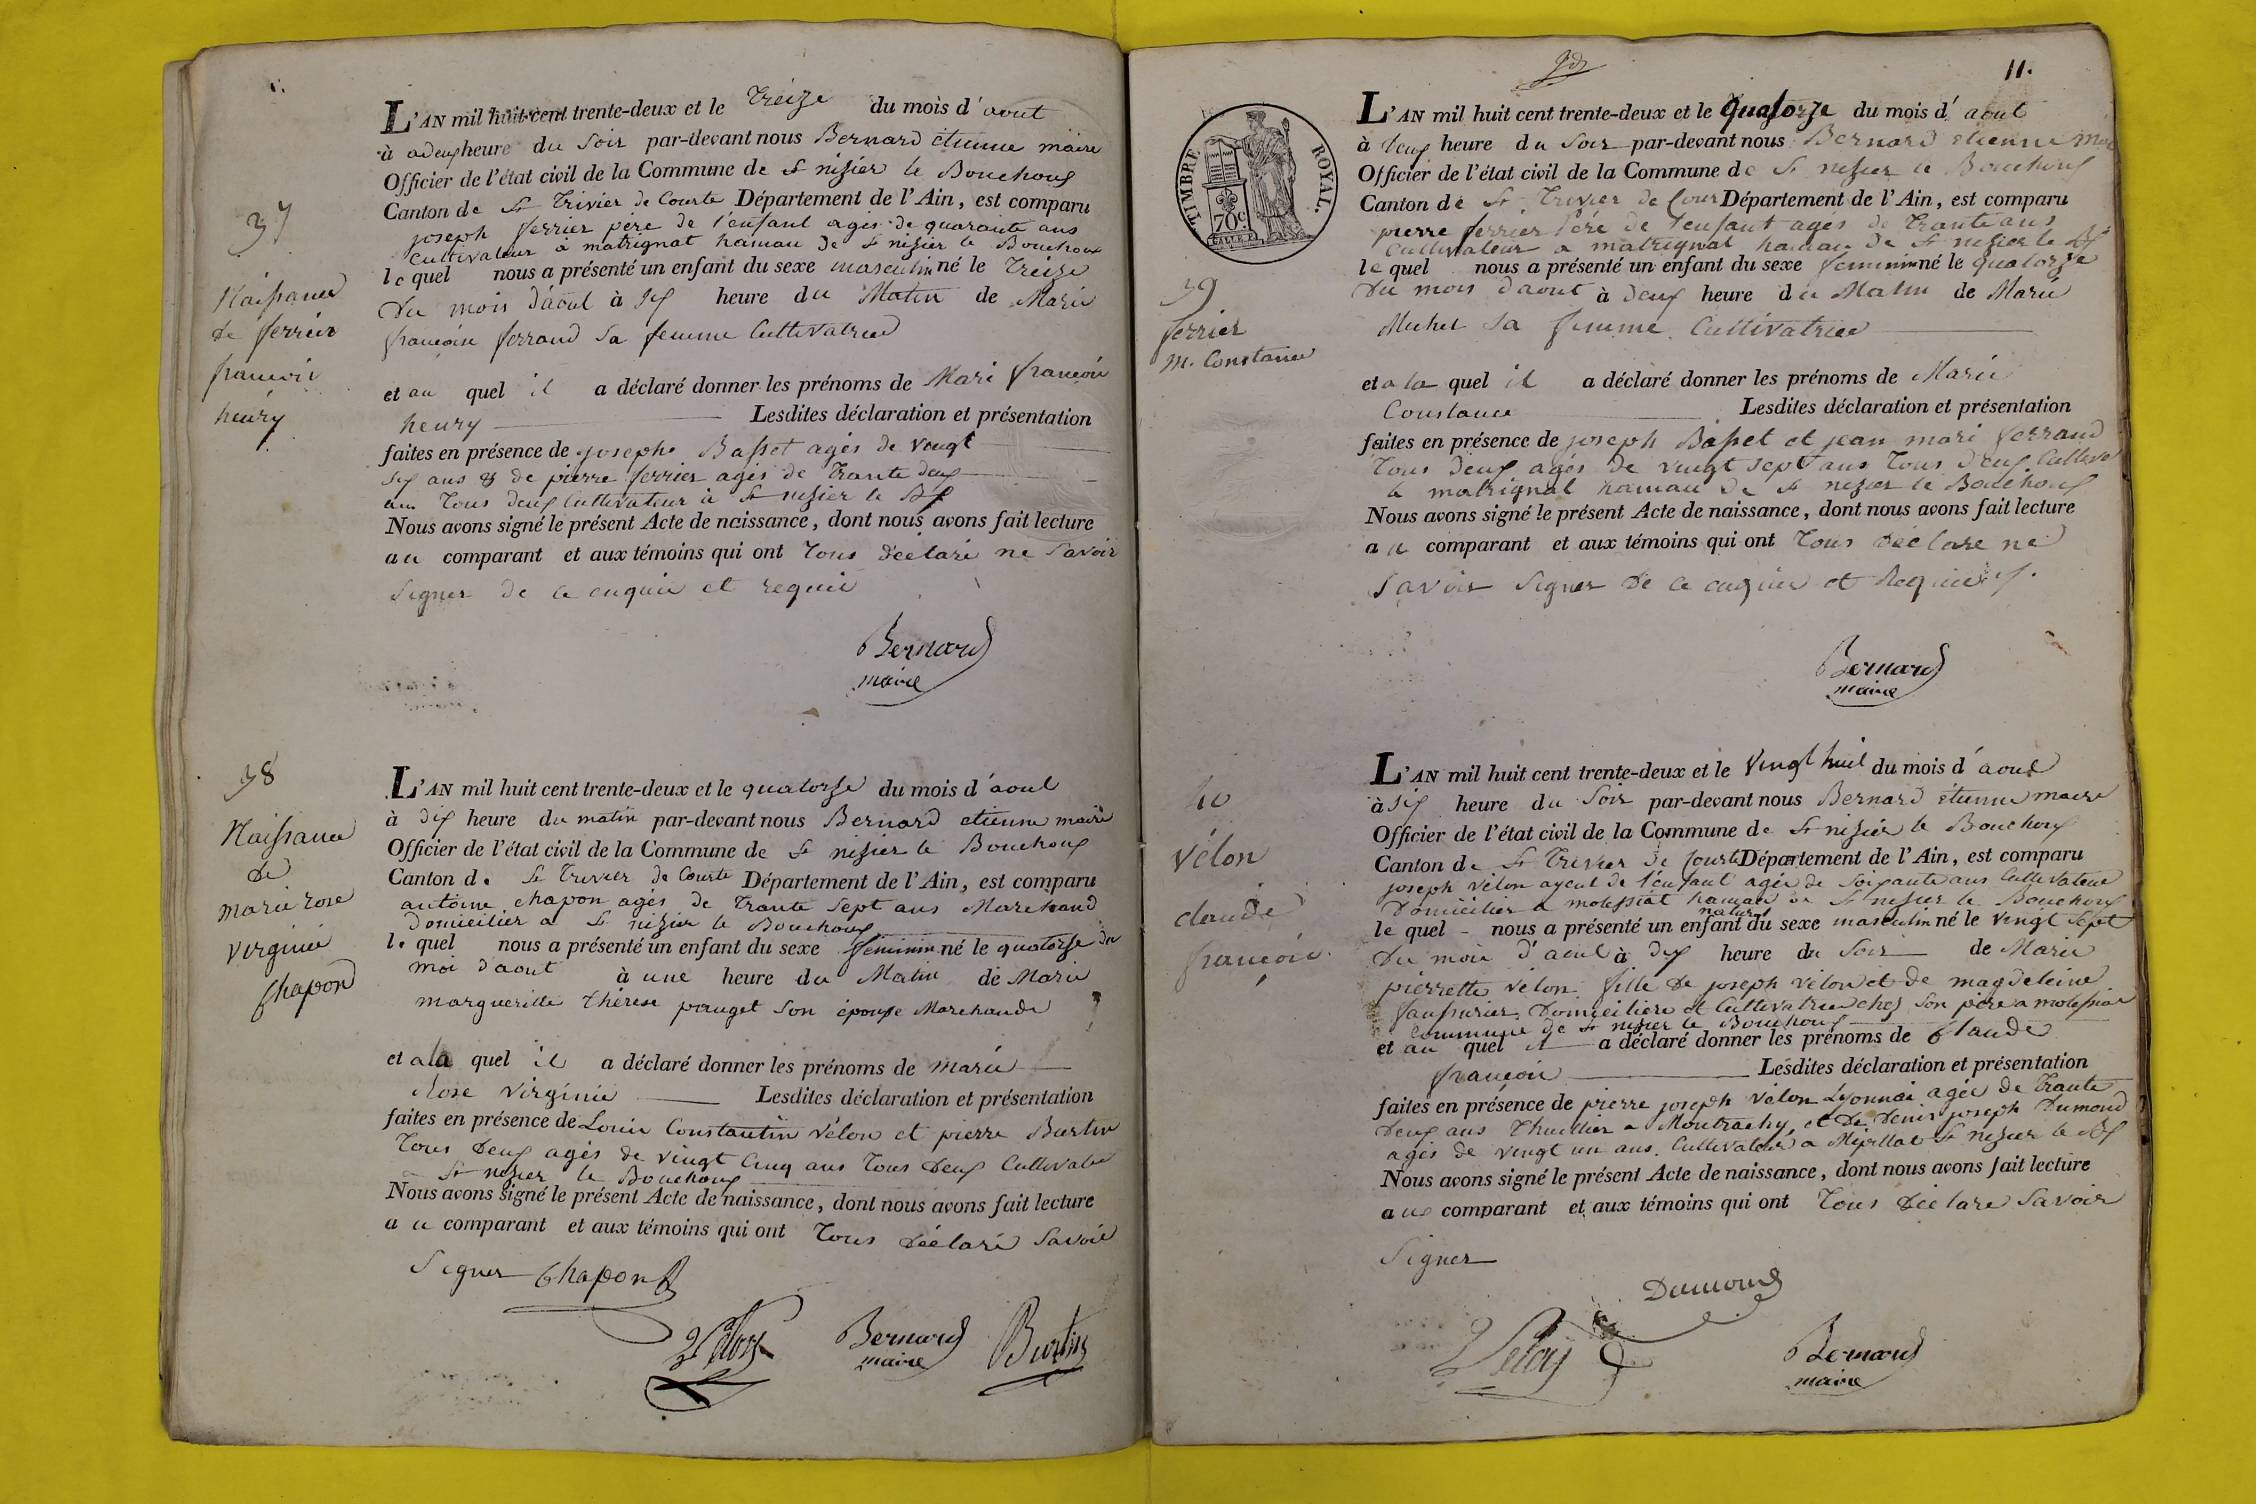 37
Naissance
de ferrier
francois
henry
L'AN mil huit cent trente-deux et le treize du mois d'aout
à adeux heure du Soir par-devant nous Bernard etienne maire
Officier de l'état civil de la Commune de St nizier le Bouchoux
Canton de St Trivier de Courte Département de l'Ain, est comparu
joseph ferrier père de l'enfant agés de quarante ans
cultivateur à matrignat hamau de St nizier le Bouchoux
le quel nous a présenté un enfant du sexe masculin né le treize
Du mois d'aout à Six heure du Matin de Marie
francoise ferrand Sa femme Cultivatrice
et au quel il a déclaré donner les prénoms de Mari francois
henry Lesdites déclaration et présentation
faites en présence de josephe Basset agés de vengt
Six ans & de pierre ferrier agés de Trante deux
ans Tous deux Cultivateur à St nizier le Bx
Nous avons signé le présent Acte de naissance, dont nous avons fait lecture
au comparant et aux témoins qui ont Tous déclaré ne Savoir
Signer de ce enquis et requis
Bernard
maire
38
Naissance
de
marie rose
virginie
Chapon
L'AN mil huit cent trente-deux et le quatorze du mois d'aout
à dix heure du matin par-devant nous Bernard etienne maire
Officier de l'état civil de la Commune de St nizier le Bouchoux
Canton de St Trivier de Courte Département de l'Ain, est comparu
antoine chapon agés de trante Sept ans Marchand
Domicilier a St nizier le Bouchoux
le quel nous a présenté un enfant du sexe feminin né le quatorze du
moi d'aout à une heure du Matin de Marie
margueritte thérese pauget Son épouse Marchande
et a la quel il a déclaré donner les prénoms de marie
Rose virginie Lesdites déclaration et présentation
faites en présence de Louis Constantin vélon et pierre Burtin
Tous Deux agés de vingt Cinq ans Tous Deux Cultivateur
St nizier le Bouchoux
Nous avons signé le présent Acte de naissance, dont nous avons fait lecture
au comparant et aux témoins qui ont Tous Déclaré Savoir
Signer Chapon
Velon Bernard maire Burtin
11.
TIMBRE ROYAL.
70c
39
ferrier
m. Constance
L'AN mil huit cent trente-deux et le quatorze du mois d'aout
à Deux heure du Soir par-devant nous Bernard etienne
Officier de l'état civil de la Commune de St nizier le Bouchoux
Canton de St Trivier de Cour Département de l'Ain, est comparu
pierre ferrier Péré de l'enfant agés de Trante ans
Cultivateur a matrignat hamau de St nizier le Bx
le quel nous a présenté un enfant du sexe feminin né le quatorze
Du mois d'aout à deux heure du Matin de Marie
Michel Sa femme Cultivatrice
et a la quel il a déclaré donner les prénoms de Marie
Constance Lesdites déclaration et présentation
faites en présence de joseph Basset et jean mari ferrand
Tous deux agés de vingt sept ans Tous Deux Cultiva
a matrignat hamau de St nizier le Bouchoux
Nous avons signé le présent Acte de naissance, dont nous avons fait lecture
au comparant et aux témoins qui ont Tous Déclaré ne
Savoir Signer De ce enquis et Requis
Bernard
maire
40
vélon
claude
francois
L'AN mil huit cent trente-deux et le vingt huit du mois d'aout
à Six heure du Soir par-devant nous Bernard étienne maire
Officier de l'état civil de la Commune de St nizier le Bouchoux
Canton de St Trivier de Courte Département de l'Ain, est comparu
joseph vélon ayeul de l'enfant agée de Soixante ans Cultivateur
Domicilier a molessiat hamau de St nizier le Bouchoux
naturel
le quel nous a présenté un enfant du sexe masculin né le vingt Sept
Du mois d'aout à Dix heure du Soir de Marie
pierrette vélon fille de joseph vélon et de magdeleine
faussurier Domiciliere et Cultivatrice chez Son père a molessiat
commune de St nizier le Bouchoux
et au quel il a déclaré donner les prénoms de Claude
francois Lesdites déclaration et présentation
faites en présence de pierre joseph vélon Lyonnai agée de Trante
Deux ans Thuillier a Montrachy et De Denis joseph Dumond
agés de vingt un ans Cultivateur a St nizier le Bx
Nous avons signé le présent Acte de naissance, dont nous avons fait lecture
aux comparant et aux témoins qui ont Tous Déclaré Savoir
Signer
Dumond
Velon Bernard
maire